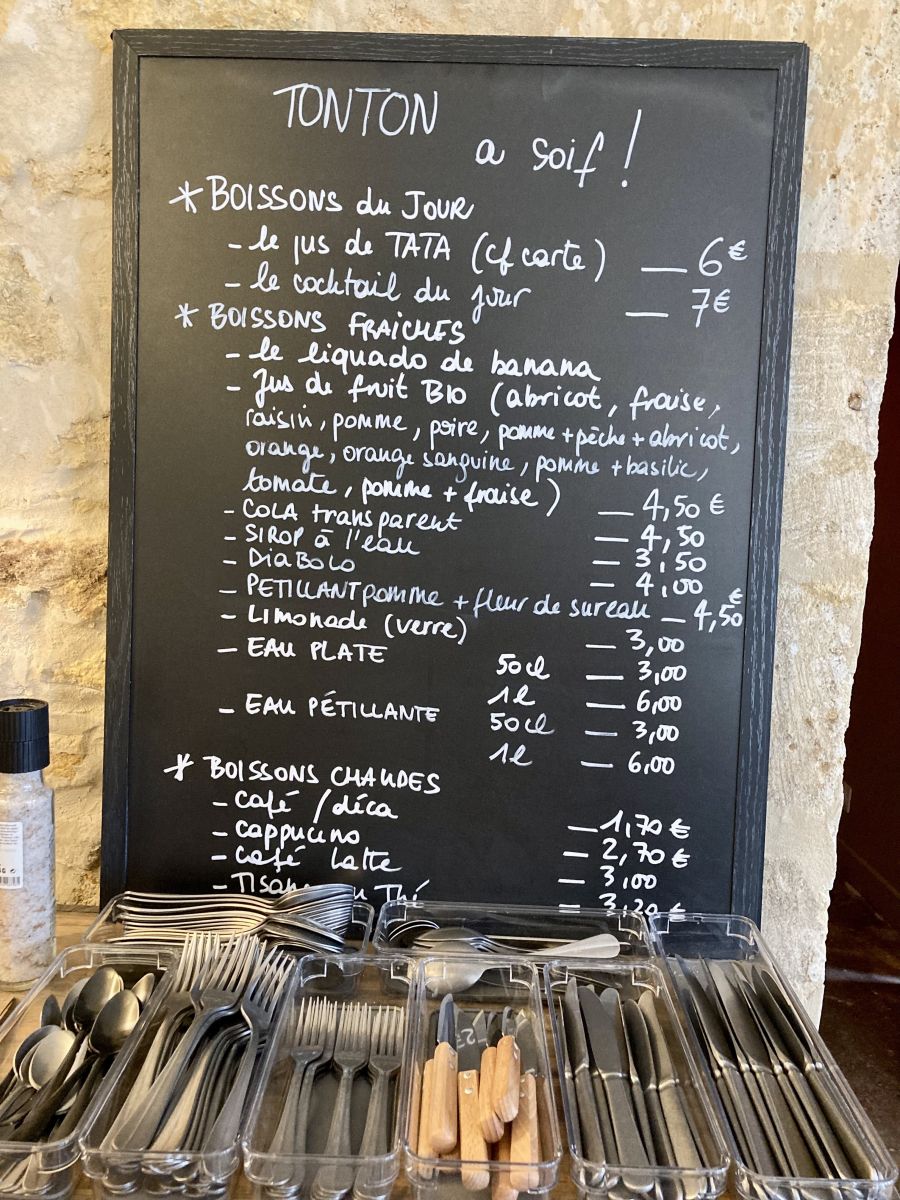 TONTON
a soif !
* BOISSONS du JOUR
- le jus de TATA (cf carte) — 6€
- le cocktail du jour — 7€
* BOISSONS FRAICHES
- le liquado de banana
- Jus de fruit BIO (abricot, fraise,
raisin, pomme, poire, pomme + pêche + abricot,
orange, orange sanguine, pomme + basilic,
tomate, pomme + fraise) — 4,50 €
- COLA transparent — 4,50
- SIROP à l'eau — 3,50
- DiaBoLo — 4,00
- PETILLANT pomme + fleur de sureau — 4,50 €
- Limonade (verre) — 3,00
- EAU PLATE 50cl — 3,00
1l — 6,00
- EAU PÉTILLANTE 50cl — 3,00
1l — 6,00
* BOISSONS CHAUDES
- café / déca — 1,70 €
- cappucino — 2,70 €
- café latte — 3,00
- Thé — 3,20 €